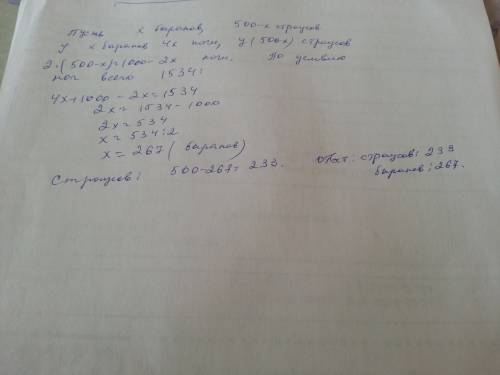 Пусть x баранов, 500-x страусов
У x баранов 4x ноги, у (500-x) страусов
2·(500-x)=1000-2x ног. По условию
ног всего 1534:
4x+1000-2x=1534
2x=1534-1000
2x=534
x=534:2
x=267 (баранов)
Страусов: 500-267=233.
Ответ: страусов: 233
баранов: 267.